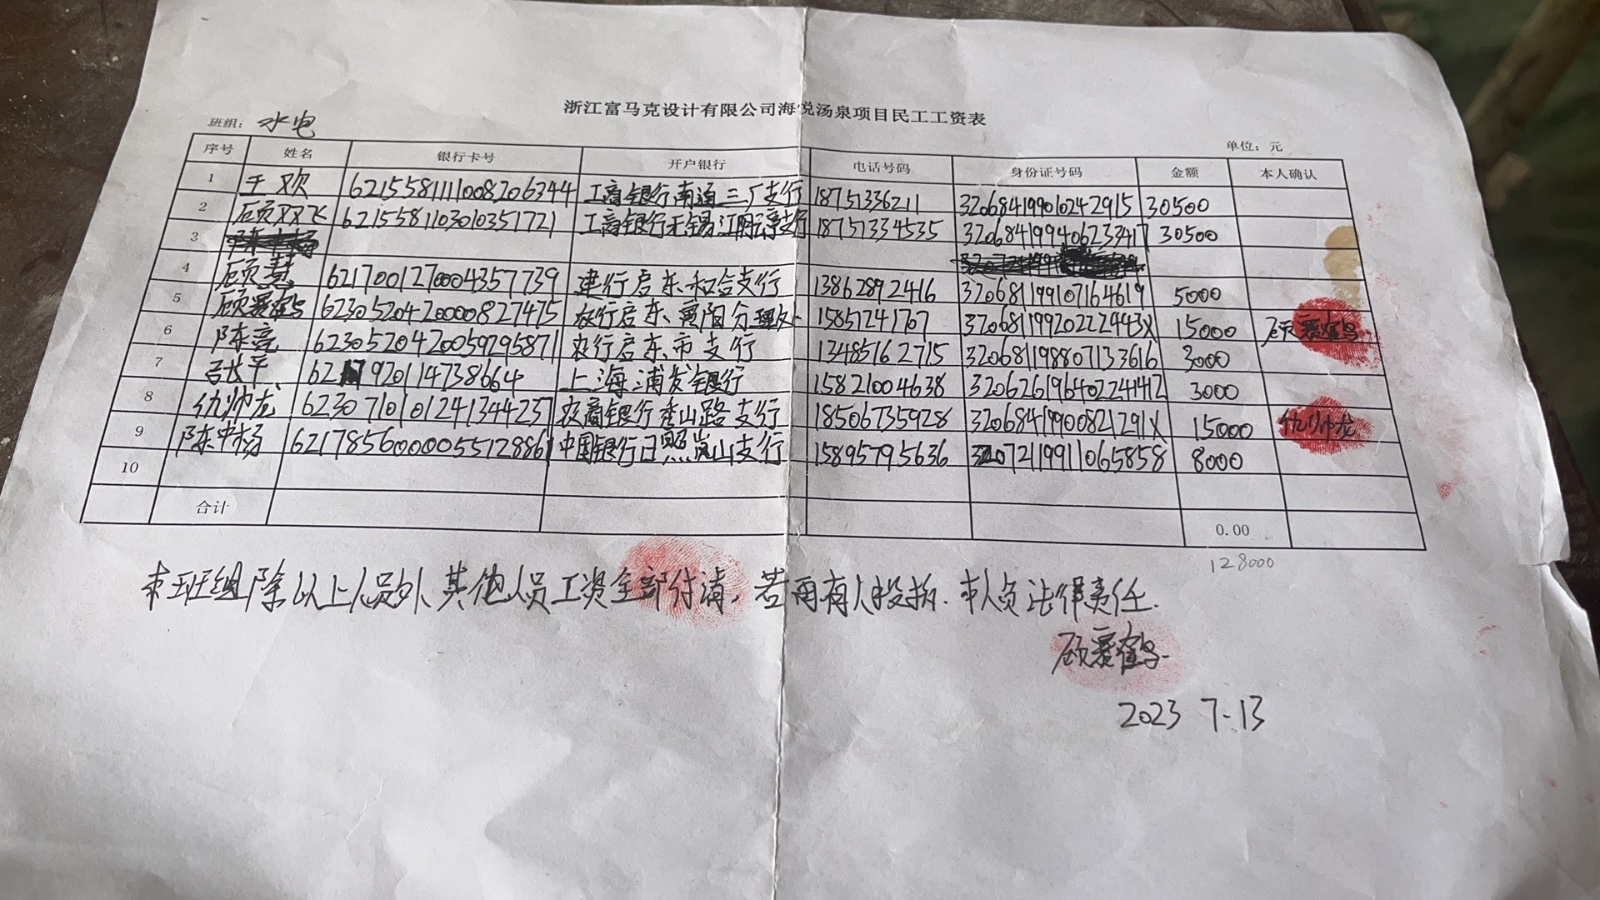 浙江富马克设计有限公司海悦汤泉项目民工工资表
班组： 水电 单位：元
序号 姓名 银行卡号 开户银行 电话号码 身份证号码 金额 本人确认
1 王欢 6215581111008206344 工商银行南通三厂支行 18751336211 320684199010242915 30500
2 顾双飞 6215581103010351721 工商银行无锡江阴 支行 18751334535 320684199406233417 30500
3
4 顾慧 6217001270004357739 建行启东和合支行 13862892416 320681199107164619 5000
5 顾爱鹤 6230520420000827475 农行启东黄阳分理处 15851241707 32068119920222443X 15000 顾爱鹤
6 陈亮 6230520420059295871 农行启东市支行 13485162715 320681198807133616 3000
7 吕长平 上海浦发银行 15821004638 320626196402241412 3000
8 仇帅龙 6230710101241344237 农商银行秀山路支行 18506735928 32068419900821291X 15000 仇帅龙
9 陈中杨 6217856000005512886 中国银行日照岚山支行 15895795636 320721199110065858 8000
10
合计 0.00
128000
本班组除以上人员外、其他人员工资全部付清，若再有人投拆.本人负法律责任.
顾爱鹤
2023 7-13